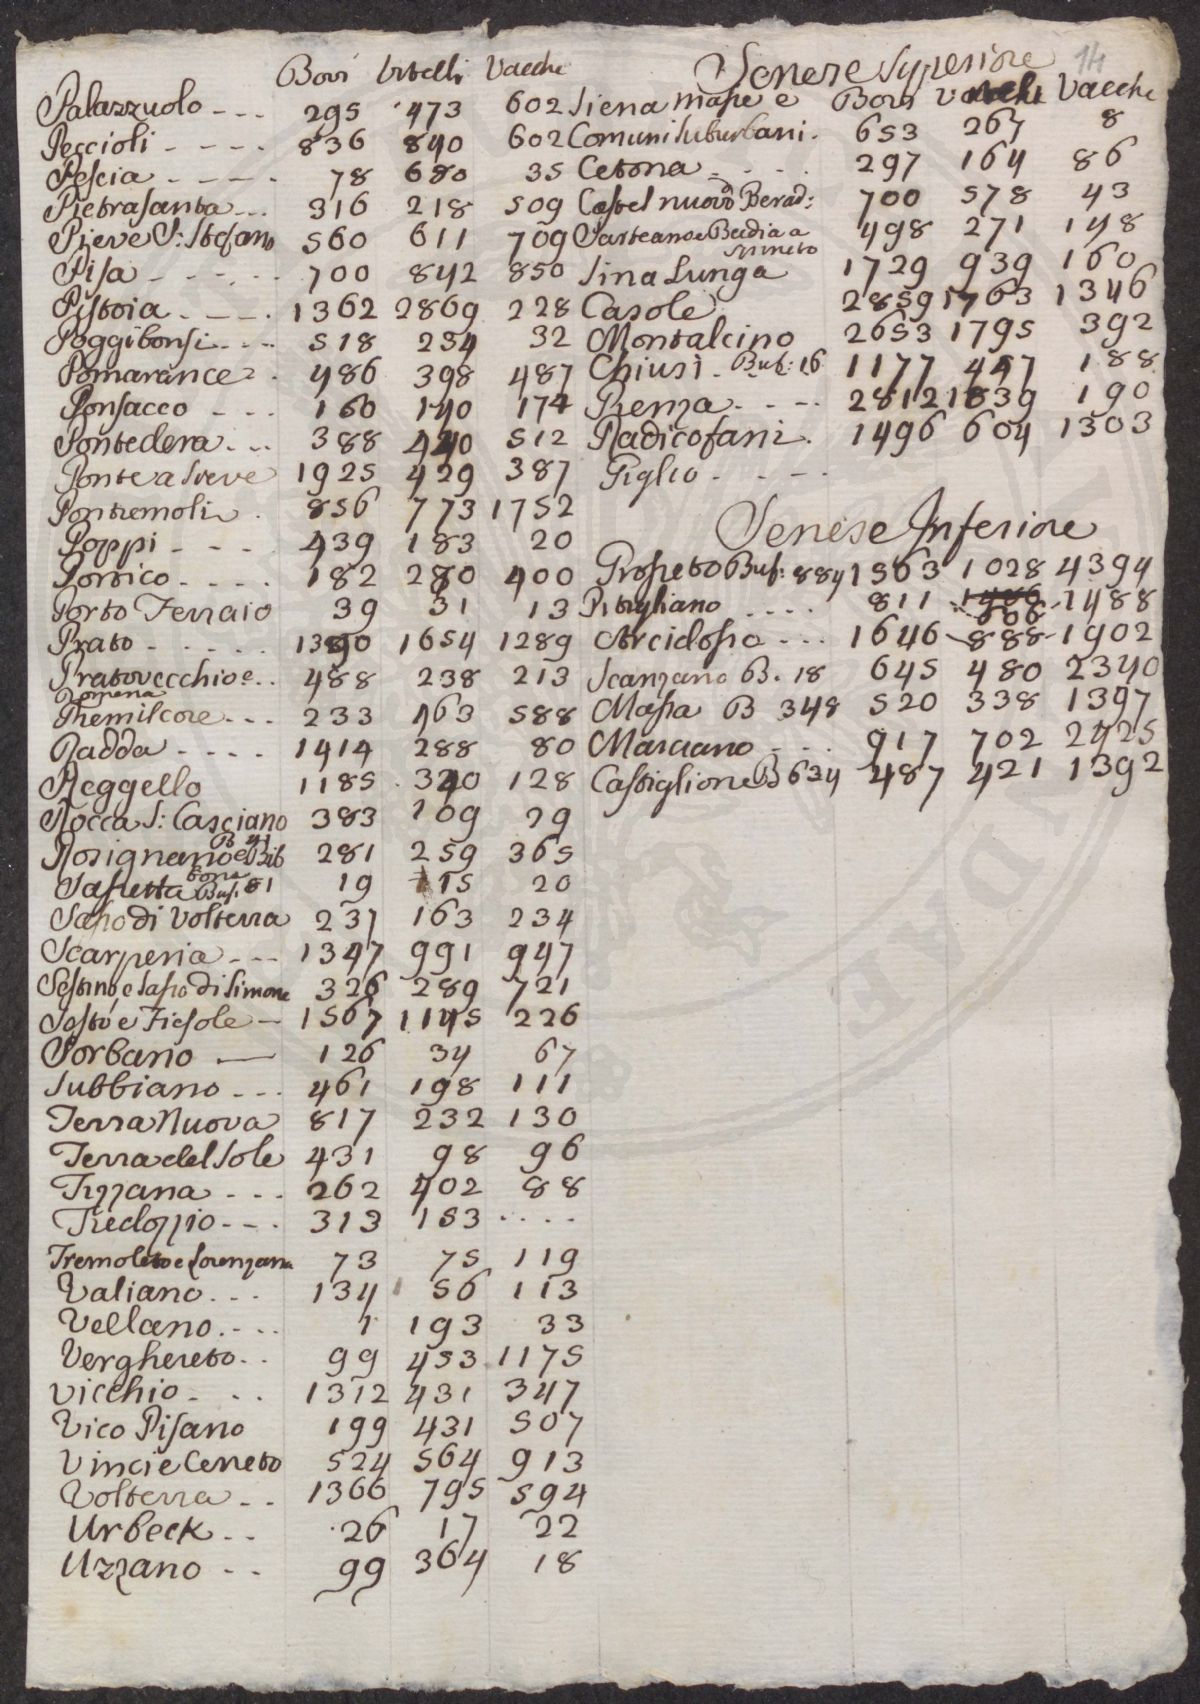 Bovi Vitelli Vacche
Palazzuolo - - - 295 473 602
Peccioli - - - - 836 840 602
Pescia - - - - - 78 680 35
Pietrasanta - - - 316 218 509
Pieve S: Stefano 560 611 709
Pisa - - - - - - 700 842 850
Pistoia - - - - 1362 2869 228
Poggibonsi - - - 518 234 32
Pomarance - . 486 398 487
Ponsacco - - - 160 140 174
Pontedera - - - 388 440 512
Ponte a Sieve 1925 429 387
Pontremoli . 856 773 1752
Poppi - - - - 439 183 20
Portico - - - - 182 280 400
Porto Ferraio 39 31 13
Prato - - - - - - 1390 1654 1289
Pratovecchio e . . 488 238 213
Romena
Premilcore - - - 233 163 588
Radda - - - - 1414 288 80
Reggello 1185 340 128
Rocca S: Casciano 383 109 29
Rosignano e Bib B 41 281 259 365
bona
Sassetta Buf: 81 19 115 20
Sasso di Volterra 231 163 234
Scarperia - - - 1347 991 947
Sestino, e Sasso di Simone 326 289 721
Sesto e Fiesole - 1567 1145 226
Sorbano — 126 34 67
Subbiano - - - 461 198 111
Terra Nuova 817 232 130
Terra del Sole 431 98 96
Tizzana - - - 262 402 88
Tredozzio - - - 313 153 . . . .
Tremoleto e Lorenzana 73 75 119
Valiano - - - 134 56 113
Vellano - - - - 1 193 33
Verghereto - - 99 453 1175
Vicchio - - - 1312 431 347
Vico Pisano 199 431 507
Vinci e Cerreto 524 564 913
Volterra - - 1366 795 594
Urbeck - - 26 17 22
Uzzano - - 99 364 18
14
Senese Superiore
Bovi Vacche
Siena Masse e
Comuni suburbani . 653 267 8
Cetona - - - - 297 164 86
Castel nuovo Berad: 700 578 43
Sarteano e Badia a 498 271 148
Spineto
Sina Lunga 1729 939 160
Casole 2859 1763 1346
Montalcino 2653 1795 392
Chiusi - Buf: 16 1177 447 188
Pienza - - - - 2812 1839 190
Radicofani . 1496 604 1303
Giglio - - - -
Senese Inferiore
Grosseto Buf: 884 1563 1028 4394
Pitigliano . . . . 811 606 1488
Arcidosso - - - 1646 888 1902
Scanzano B. 18 645 480 2340
Massa B 348 520 338 1397
Manciano - - - 917 702 2425
Castiglione B 634 487 421 1392